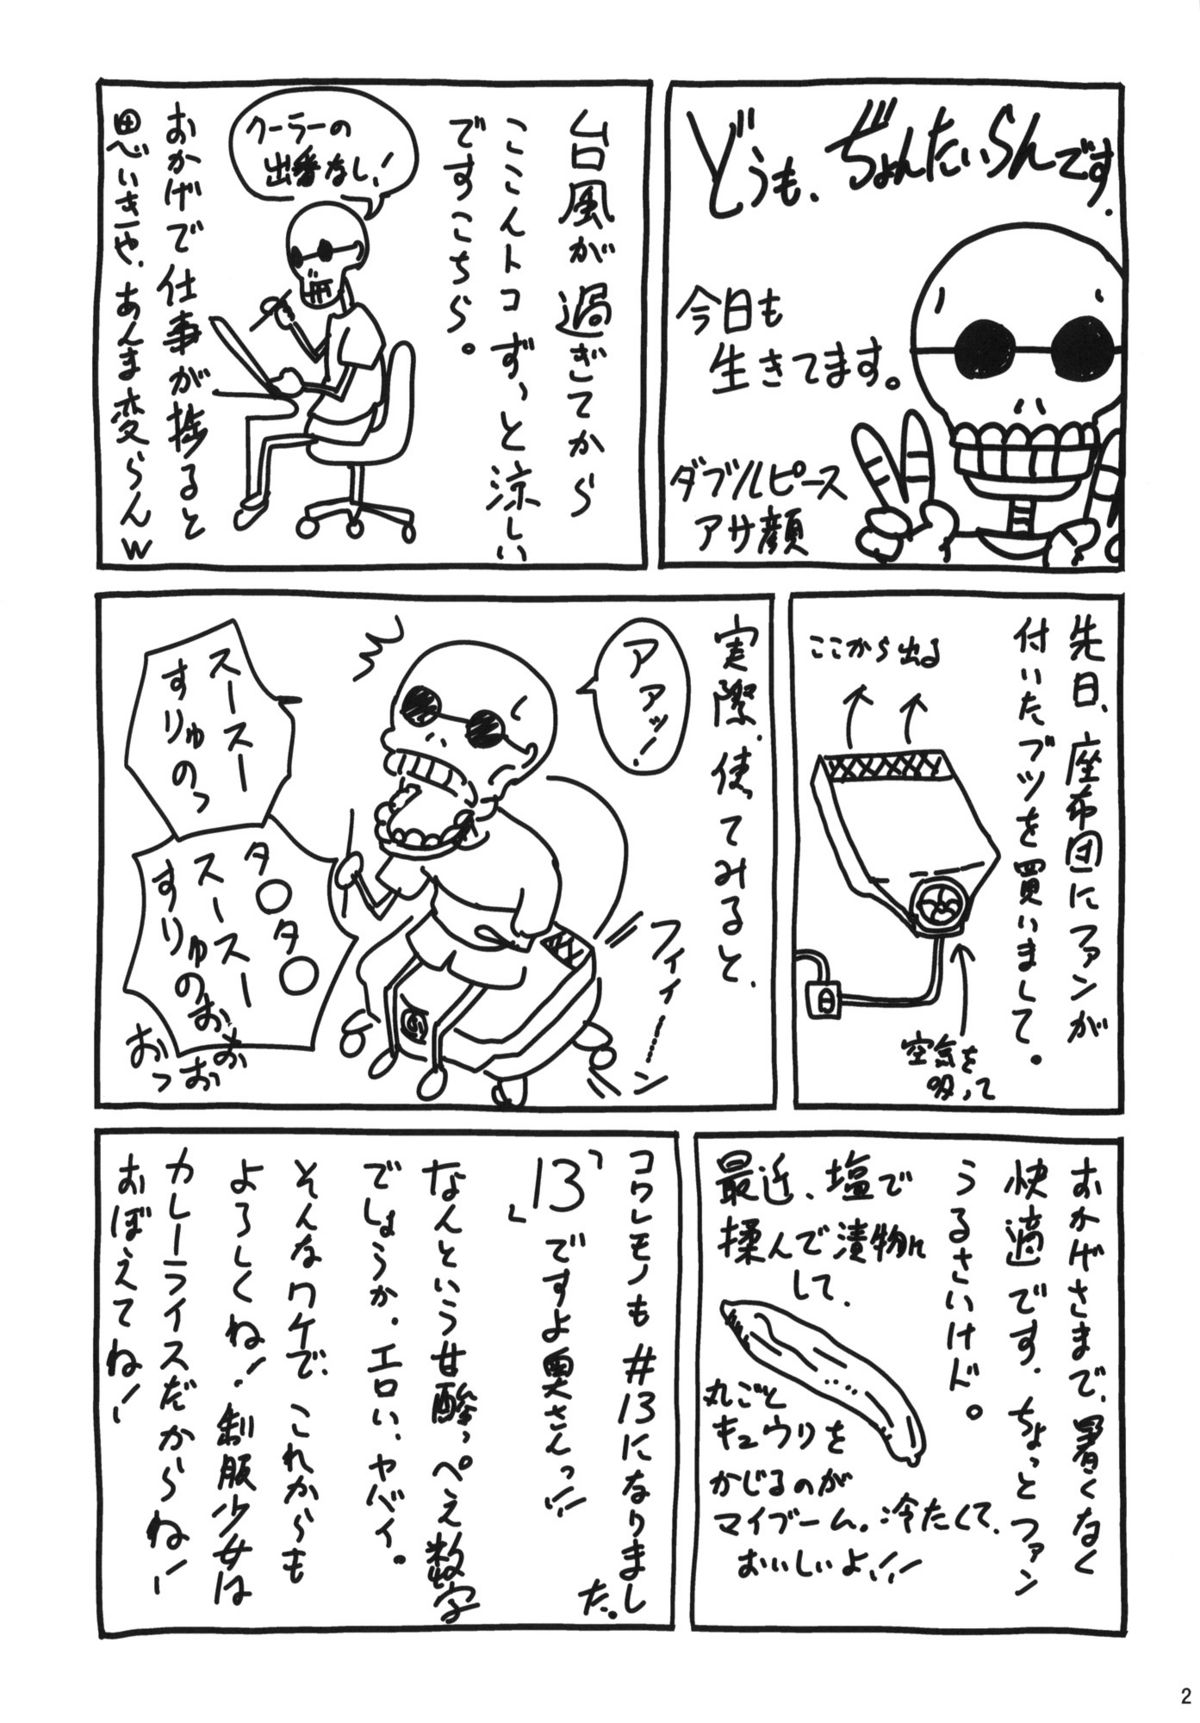 どうも、ぢょんたいらんです。
今日も
生きてます。
ダブルピース
アサ顔
台風が過ぎてから
ここんトコずっと涼しい
ですこちら。
クーラーの
出番なし!
おかげで仕事が捗ると
思いきや、あんま変らんw
先日、座布団にファンが
付いたブツを買いまして。
ここから出る
空気を
吸って
実際、使ってみると、
アアッ!
フィィィーン
スースー
すりゅのっ
タ○タ○
スースー
すりゅのぉぉ
おおおおっ
おかげさまで、暑くなく
快適です。ちょっとファン
うるさいけド。
最近、塩で
揉んで漬物に
して、
丸ごと
キュウリを
かじるのが
マイブーム。冷たくて、
おいしいよ!!
コワレモノも#13になりました。
「13」ですよ奥さんっ!!
なんという甘酸っぺえ数字
でしょうか。エロい、ヤバイ。
そんなワケで、これからも
よろしくね!制服少女は
カレーライスだからね!
おぼえてね!
2